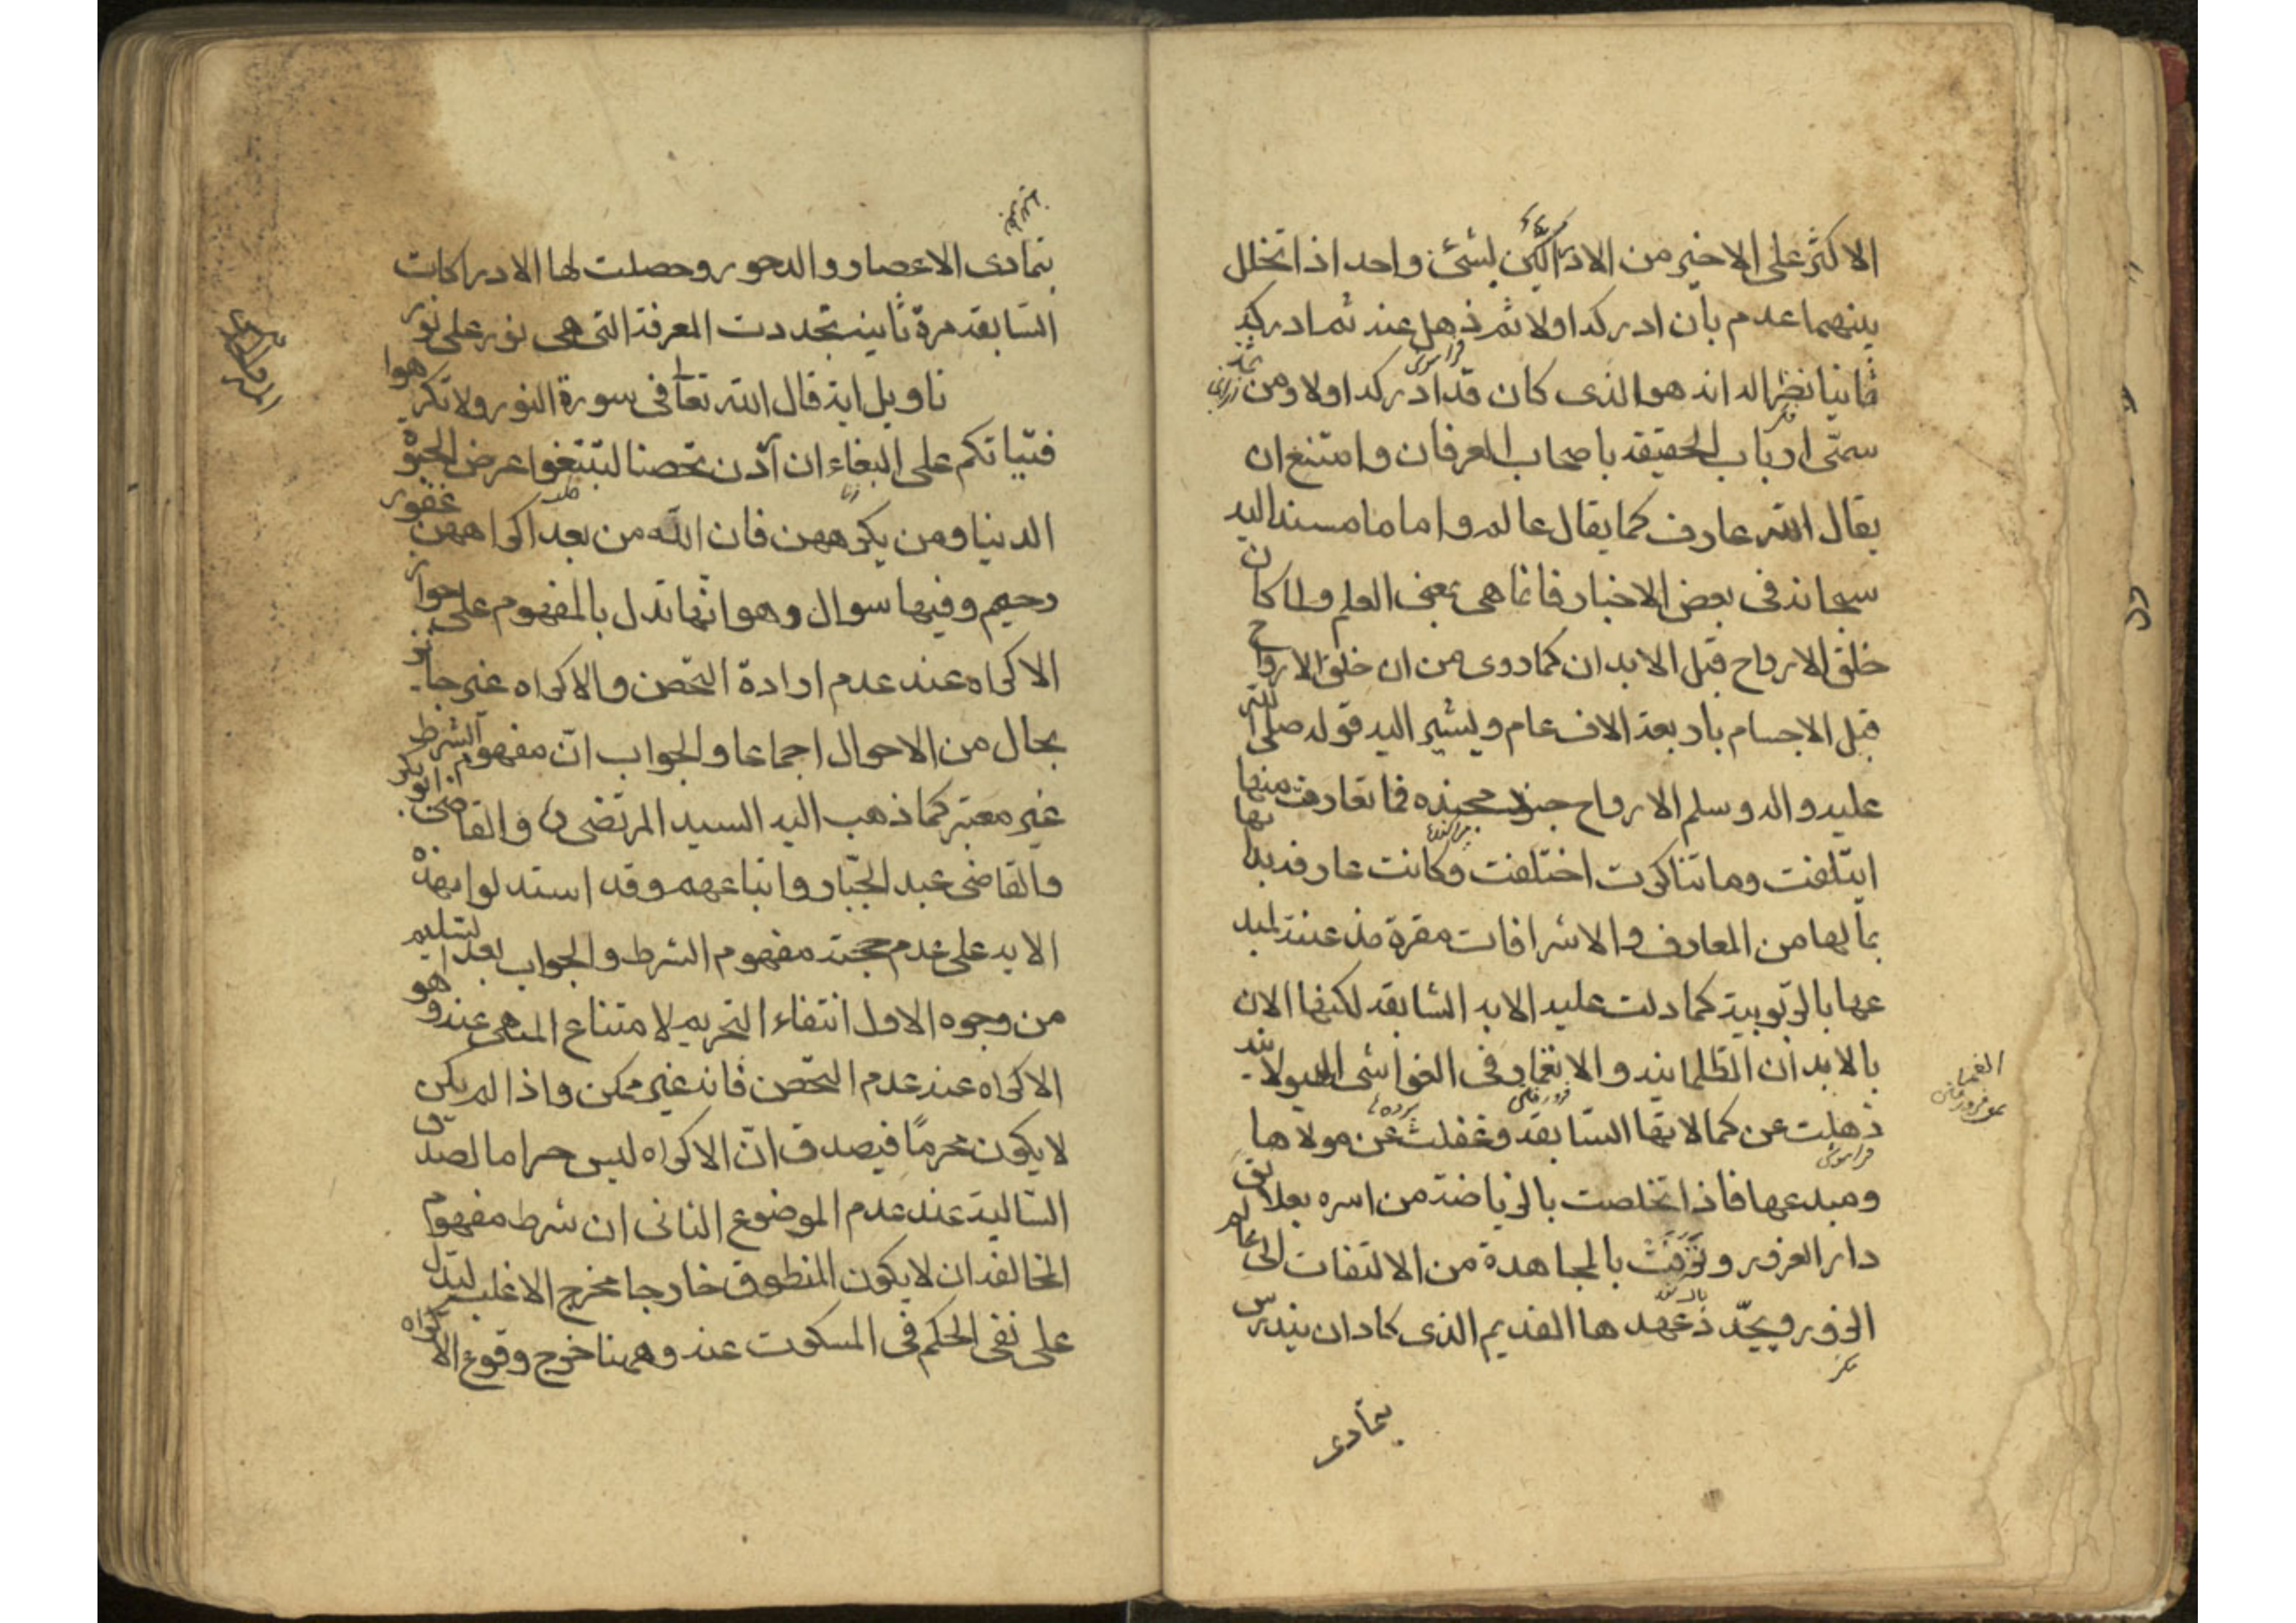 الاكثر على الاخير من الادراكين لشئ واحد اذا تخلل
بينهما عدم بان ادركه اولا ثم ذهل عنه ثم ادركه
ثانيا نظرا له انه هو الذى كان قد ادركه اولا ومن
فراموش
سمى ارباب الحقيقة باصحاب العرفان وامتنع ان
يقال الله عارف كما يقال عالم واما ما مسند اليه
سبحانه فى بعض الاخبار فانما هى بمعنى العلم ولما كان
خلق الارواح قبل الابدان كما روى من ان خلق الارواح
قبل الاجسام باربعة الاف عام ويشير اليه قوله صلى الله
عليه واله وسلم الارواح جنود مجنده فما تعارف منها
ايتلفت وما تناكرت اختلفت وكانت عارفة بها
بمالها من المعارف والاشراقات مقرة لمبد
عها بالربوبية كما دلت عليه الاية السابقة لكنها الان
بالابدان الظلمانيه والانغمار فى الغواشى الهيولانيه
ذهلت عن كمالاتها السابقة وغفلت عن مولاها
فراموش
ومبدعها فاذا تخلصت بالرياضة من اسره بعلائق
دار الغرور وترقت بالمجاهدة من الالتفات الى عالم
الزور ويجدد عهدها القديم الذى كاد ان يندرس
بتمادى
بتمادى الاعصار والدهور وحصلت لها الادراكات
السابقة مرة ثانية تجددت المعرفة التى هى نور على نور
تاويل اية قال الله تعا فى سورة النور ولا تكرهوا
فتياتكم على البغاء ان اردن تحصنا لتبتغوا عرض الحيوة
زنا
الدنيا ومن يكرههن فان الله من بعد اكراههن غفور
رحيم وفيها سوال وهو انها تدل بالمفهوم على جواز
الاكراه عند عدم ارادة التحصن والاكراه غير جائز
بحال من الاحوال اجماعا والجواب ان مفهوم الشرط
غير معتبر كما ذهب اليه السيد المرتضى والقاضى ابو بكر
والقاضى عبد الجبار واتباعهم وقد استدلوا بهذه
الاية على عدم حجية مفهوم الشرط والجواب بعد التسليم
من وجوه الاول انتفاء التحريم لامتناع المنهى عنه وهو
الاكراه عند عدم التحصن فانه غير ممكن واذا لم يكن
لا يكون محرمًا فيصدق ان الاكراه ليس حراما لصدق
السالبة عند عدم الموضوع الثانى ان شرط مفهوم
المخالفة ان لا يكون المنطوق خارجا مخرج الاغلب ليدل
على نفى الحكم فى المسكوت عنه وههنا خرج وقوع الاكراه